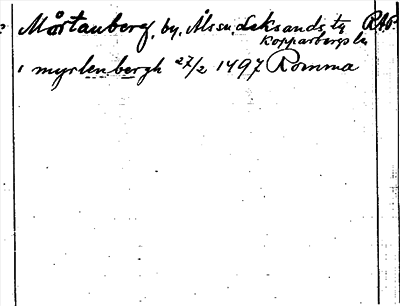 Mårtanberg, by, Åls sn, Leksands tg RAp.
Kopparbergs län
i myrten bergh 27/2 1497 Romma